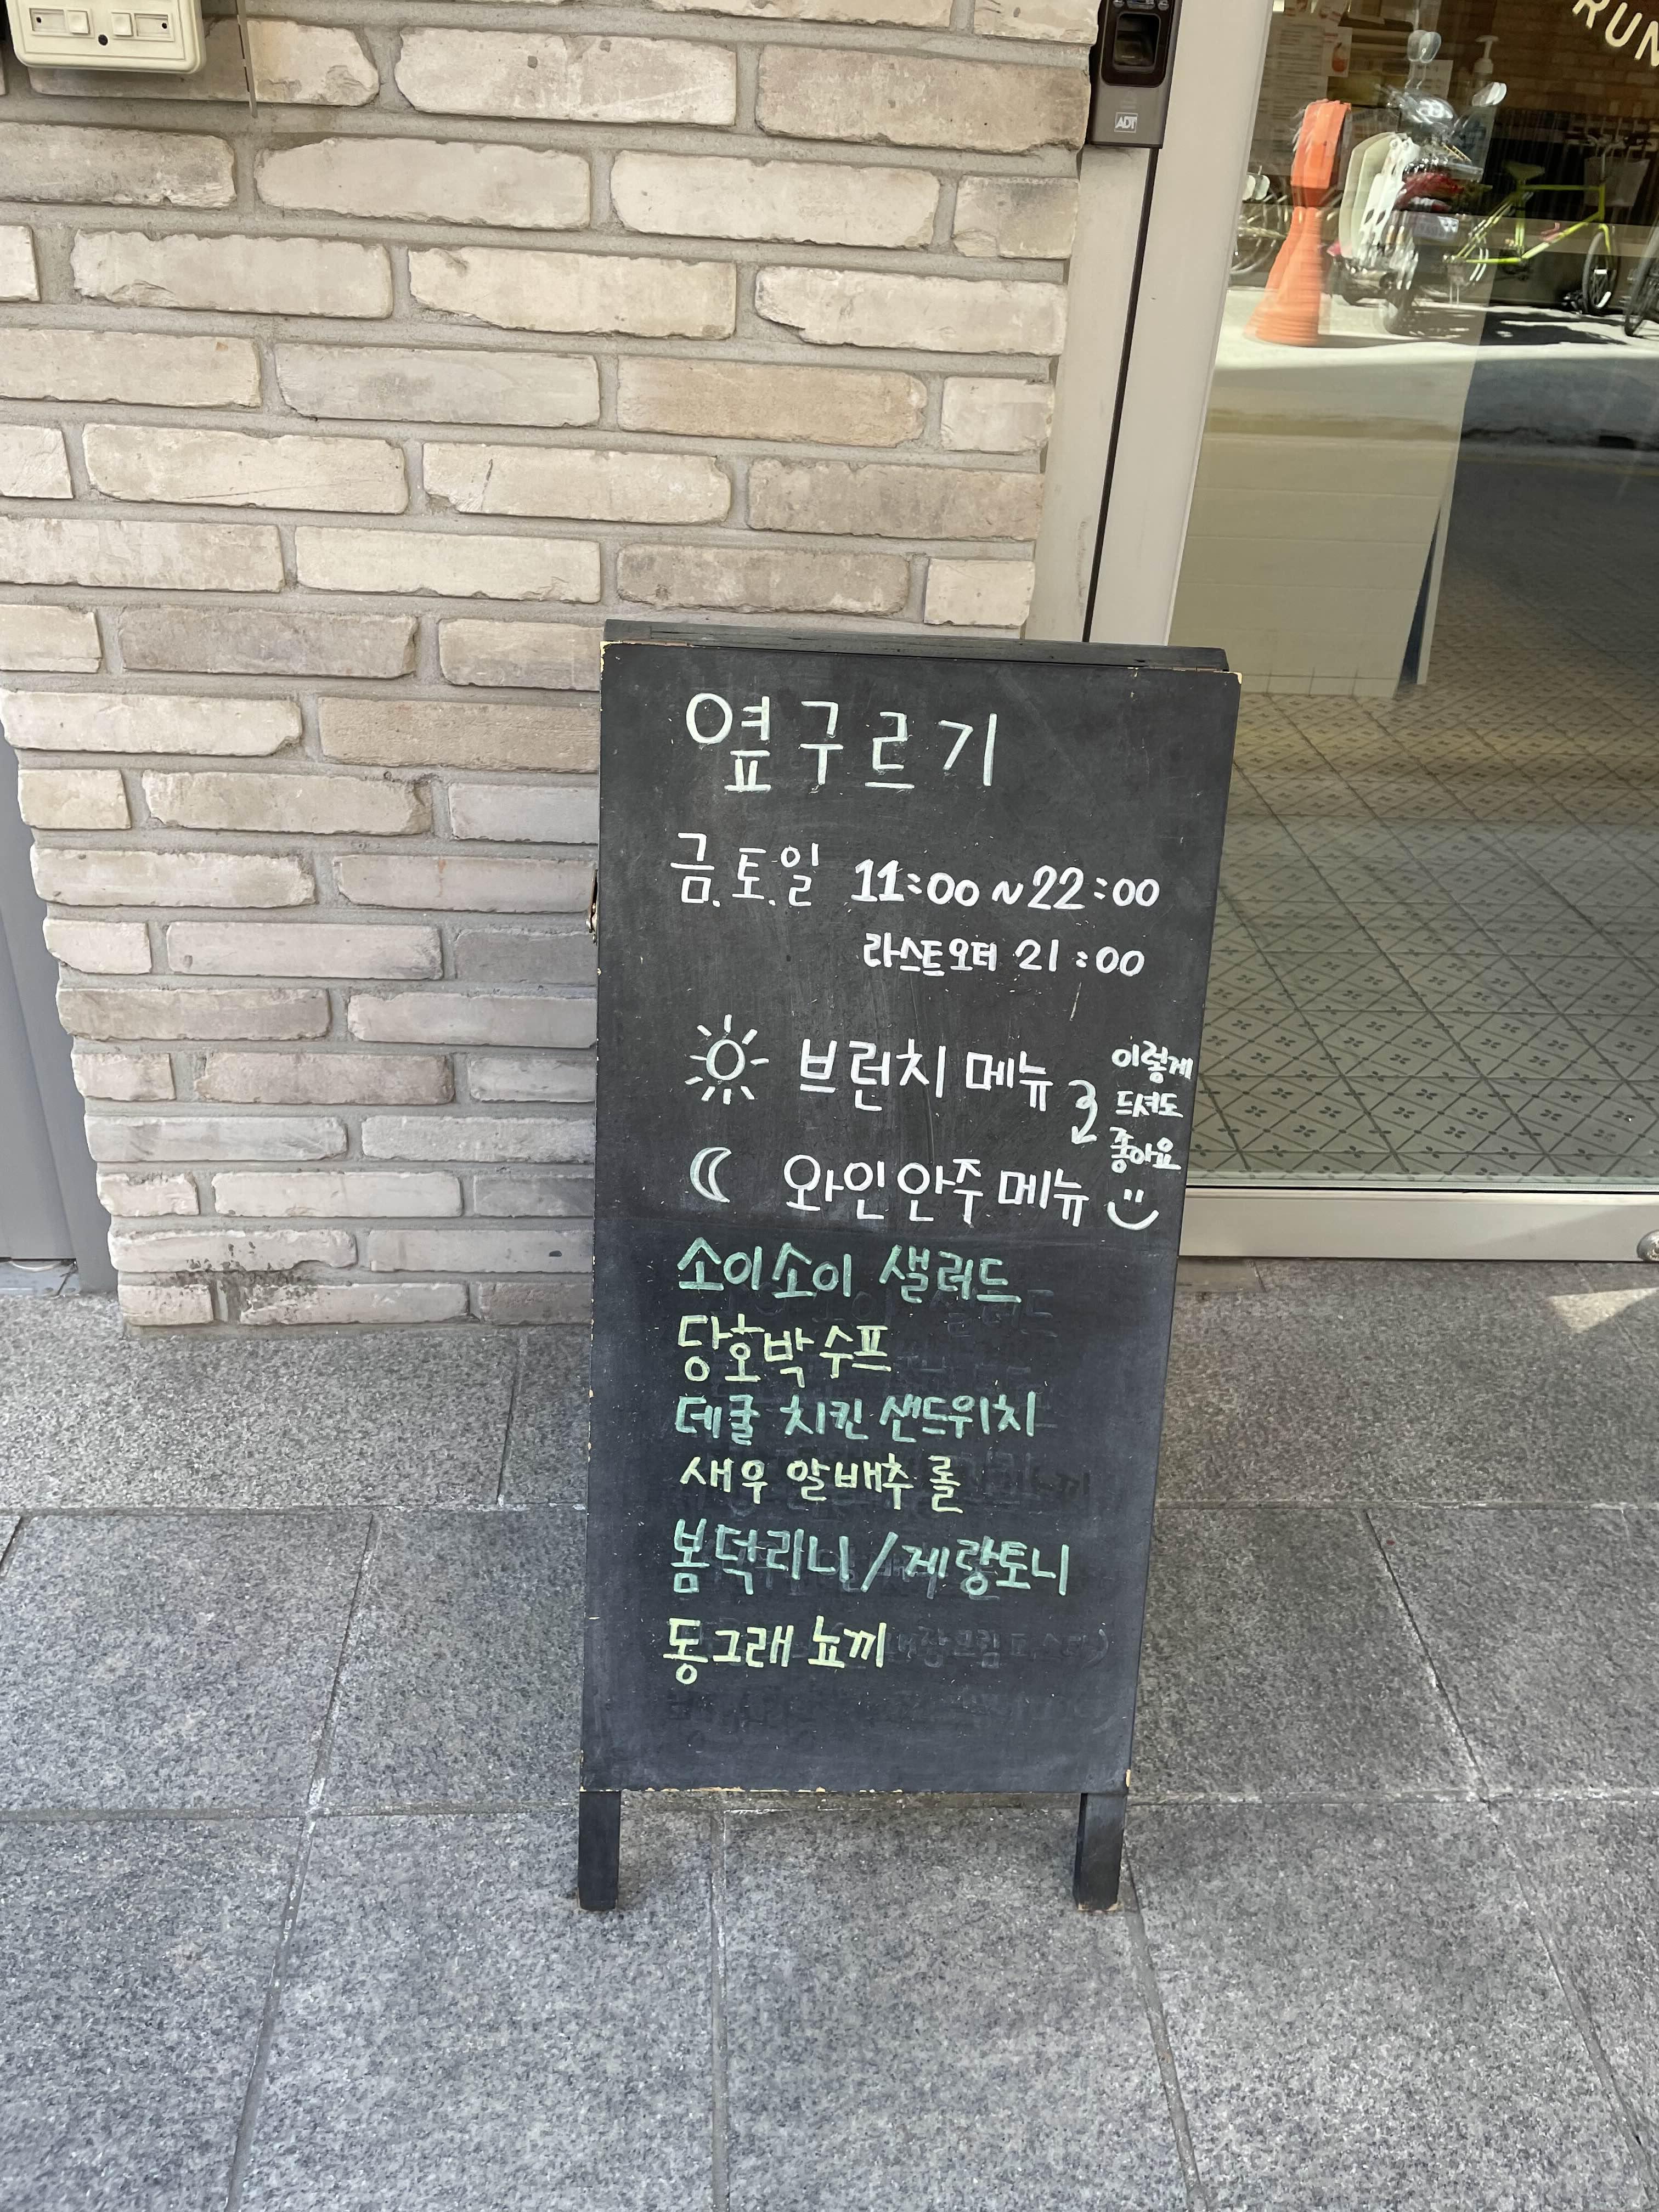 RUN
ADT
옆구르기
금.토.일 11:00~22:00
라스트오더 21:00
브런치 메뉴
이렇게
드셔도
좋아요
와인안주 메뉴
소이소이 샐러드
당호박 수프
데쿨 치킨 샌드위치
새우 알배추 롤
봄덕리니/계랑토니
동그래 뇨끼